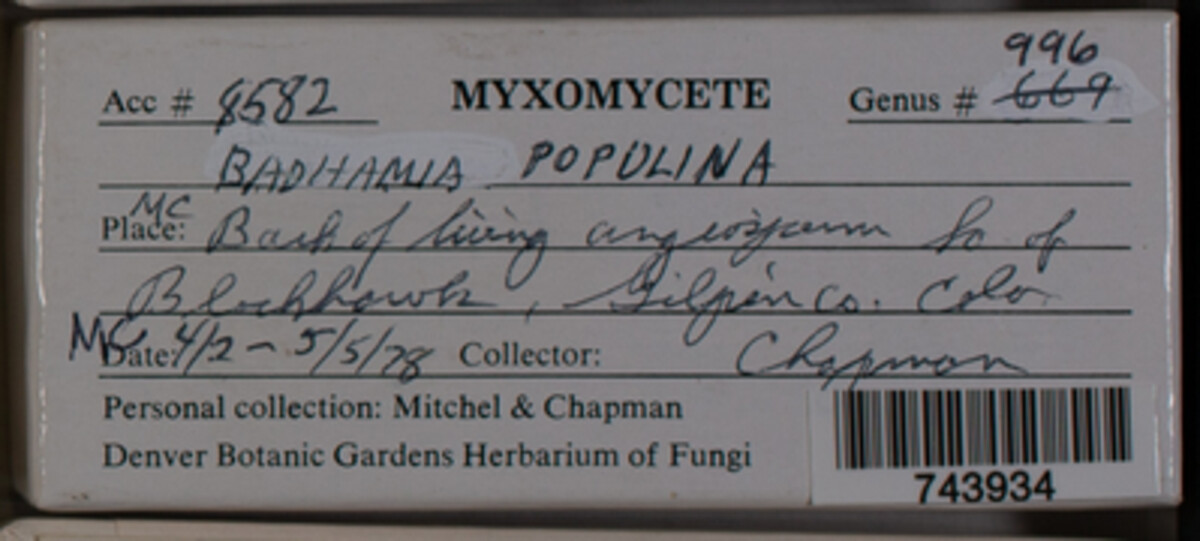 996
Acc # 8582 MYXOMYCETE Genus # 669
BADHAMIA POPULINA
MC
Place: Bark of living angiosperm So of
Blackhawk, Gilpin Co. Colo
MC Date: 4/2 - 5/5/78 Collector: Chapman
Personal collection: Mitchel & Chapman
Denver Botanic Gardens Herbarium of Fungi
743934